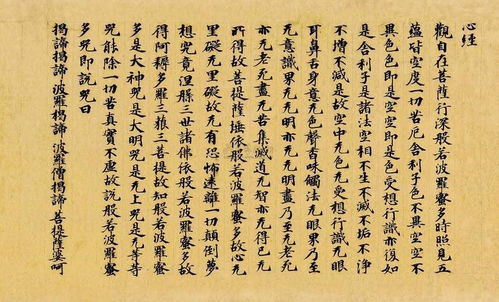 心経
觀自在菩薩行深般若波羅蜜多時照見五
蘊皆空度一切苦厄舍利子色不異空空不
異色色即是空空即是色受想行識亦復如
是舍利子是諸法空相不生不滅不垢不淨
不增不減是故空中无色无受想行識无眼
耳鼻舌身意无色聲香味觸法无眼界乃至
无意識界无无明亦无无明盡乃至无老死
亦无老死盡无苦集滅道无智亦无得已无
所得故菩提薩埵依般若波羅蜜多故心无
罣礙无罣礙故无有恐怖遠離一切顛倒夢
想究竟涅槃三世諸佛依般若波羅蜜多故
得阿耨多羅三藐三菩提故知般若波羅蜜
多是大神咒是大明咒是无上咒是无等等
咒能除一切苦真實不虛故說般若波羅蜜
多咒即說咒曰
揭諦揭諦 波羅揭諦 波羅僧揭諦 菩提薩婆訶